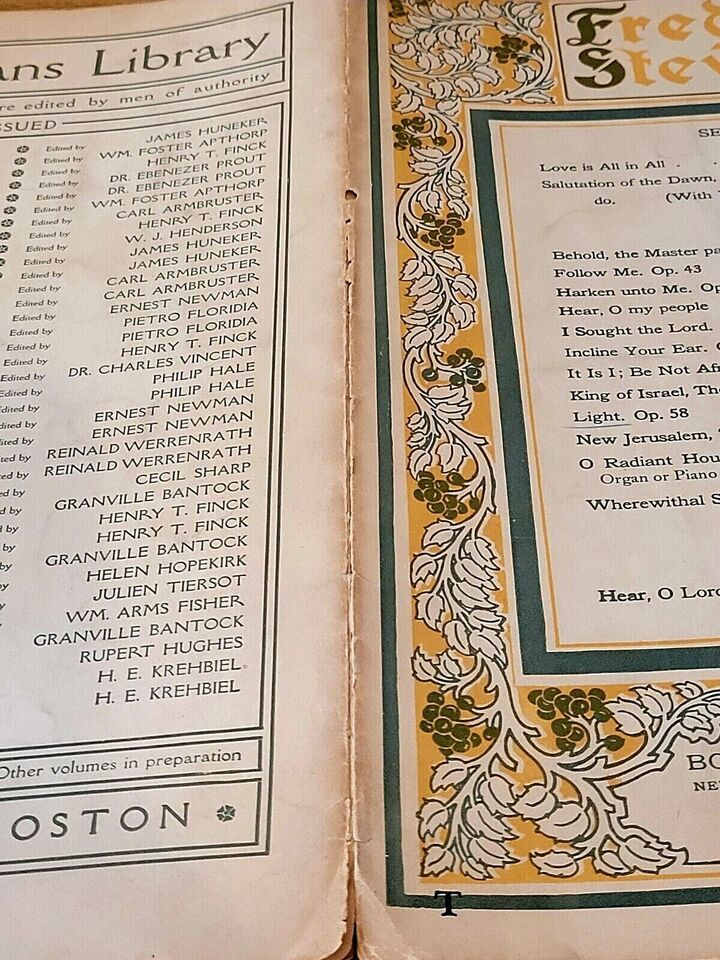 ans Library
re edited by men of authority
SSUED
Edited by JAMES HUNEKER
Edited by WM. FOSTER APTHORP
Edited by HENRY T. FINCK
Edited by DR. EBENEZER PROUT
Edited by DR. EBENEZER PROUT
Edited by WM. FOSTER APTHORP
Edited by CARL ARMBRUSTER
Edited by HENRY T. FINCK
Edited by W. J. HENDERSON
Edited by JAMES HUNEKER
Edited by JAMES HUNEKER
Edited by CARL ARMBRUSTER
Edited by CARL ARMBRUSTER
Edited by ERNEST NEWMAN
Edited by PIETRO FLORIDIA
Edited by PIETRO FLORIDIA
Edited by HENRY T. FINCK
Edited by DR. CHARLES VINCENT
Edited by PHILIP HALE
Edited by PHILIP HALE
Edited by ERNEST NEWMAN
dited by ERNEST NEWMAN
dited by REINALD WERRENRATH
ited by REINALD WERRENRATH
ted by CECIL SHARP
ed by GRANVILLE BANTOCK
ed by HENRY T. FINCK
d by HENRY T. FINCK
by GRANVILLE BANTOCK
by HELEN HOPEKIRK
by JULIEN TIERSOT
by WM. ARMS FISHER
by GRANVILLE BANTOCK
by RUPERT HUGHES
by H. E. KREHBIEL
y H. E. KREHBIEL
Other volumes in preparation
OSTON
Fred
Stev
SE
Love is All in All .
Salutation of the Dawn,
do. (With
Behold, the Master pa
Follow Me. Op. 43
Harken unto Me. Op
Hear, O my people
I Sought the Lord.
Incline Your Ear.
It Is I; Be Not Afr
King of Israel, The
Light. Op. 58
New Jerusalem,
O Radiant Hou
Organ or Piano
Wherewithal S
Hear, O Lord
BO
NE
T